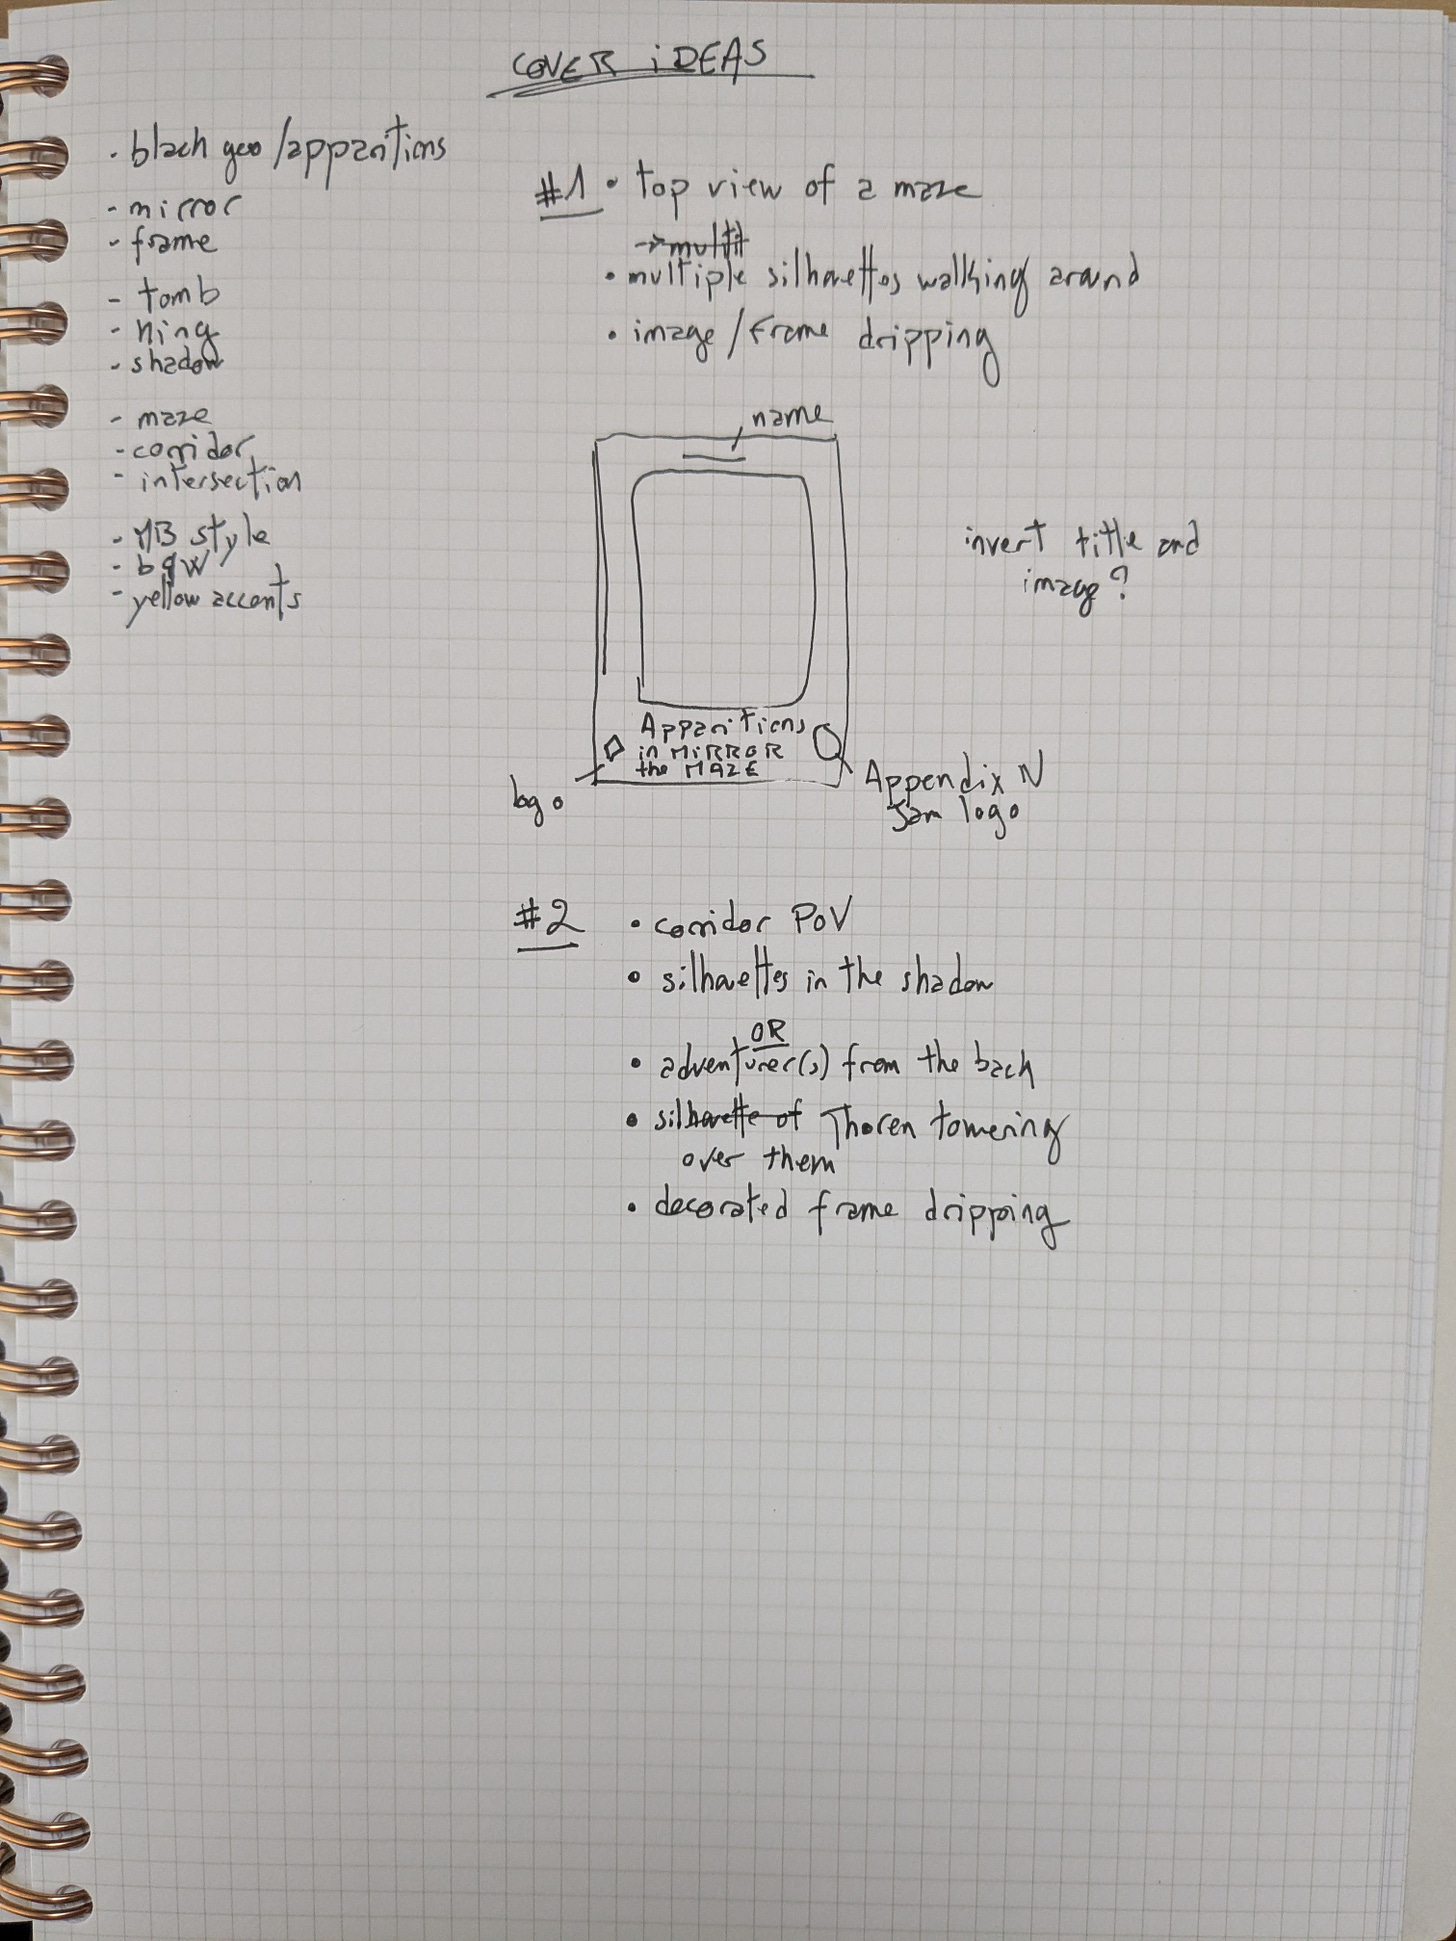 COVER iDEAS
. black goo / apparitions
- mirror
- frame
- tomb
- king
- shadow
- maze
- corridor
- intersection
- MB style
- b&w
- yellow accents
#1 • top view of a maze
→ multit
• multiple silhouettes walking around
• image / frame dripping
name
invert title and
image?
Apparitions
in MiRROR
the MAZE
logo
Appendix N
Jam logo
#2 • corridor PoV
• silhouettes in the shadow
OR
• adventurer(s) from the back
• silhouette of Thoren towering
over them
• decorated frame dripping